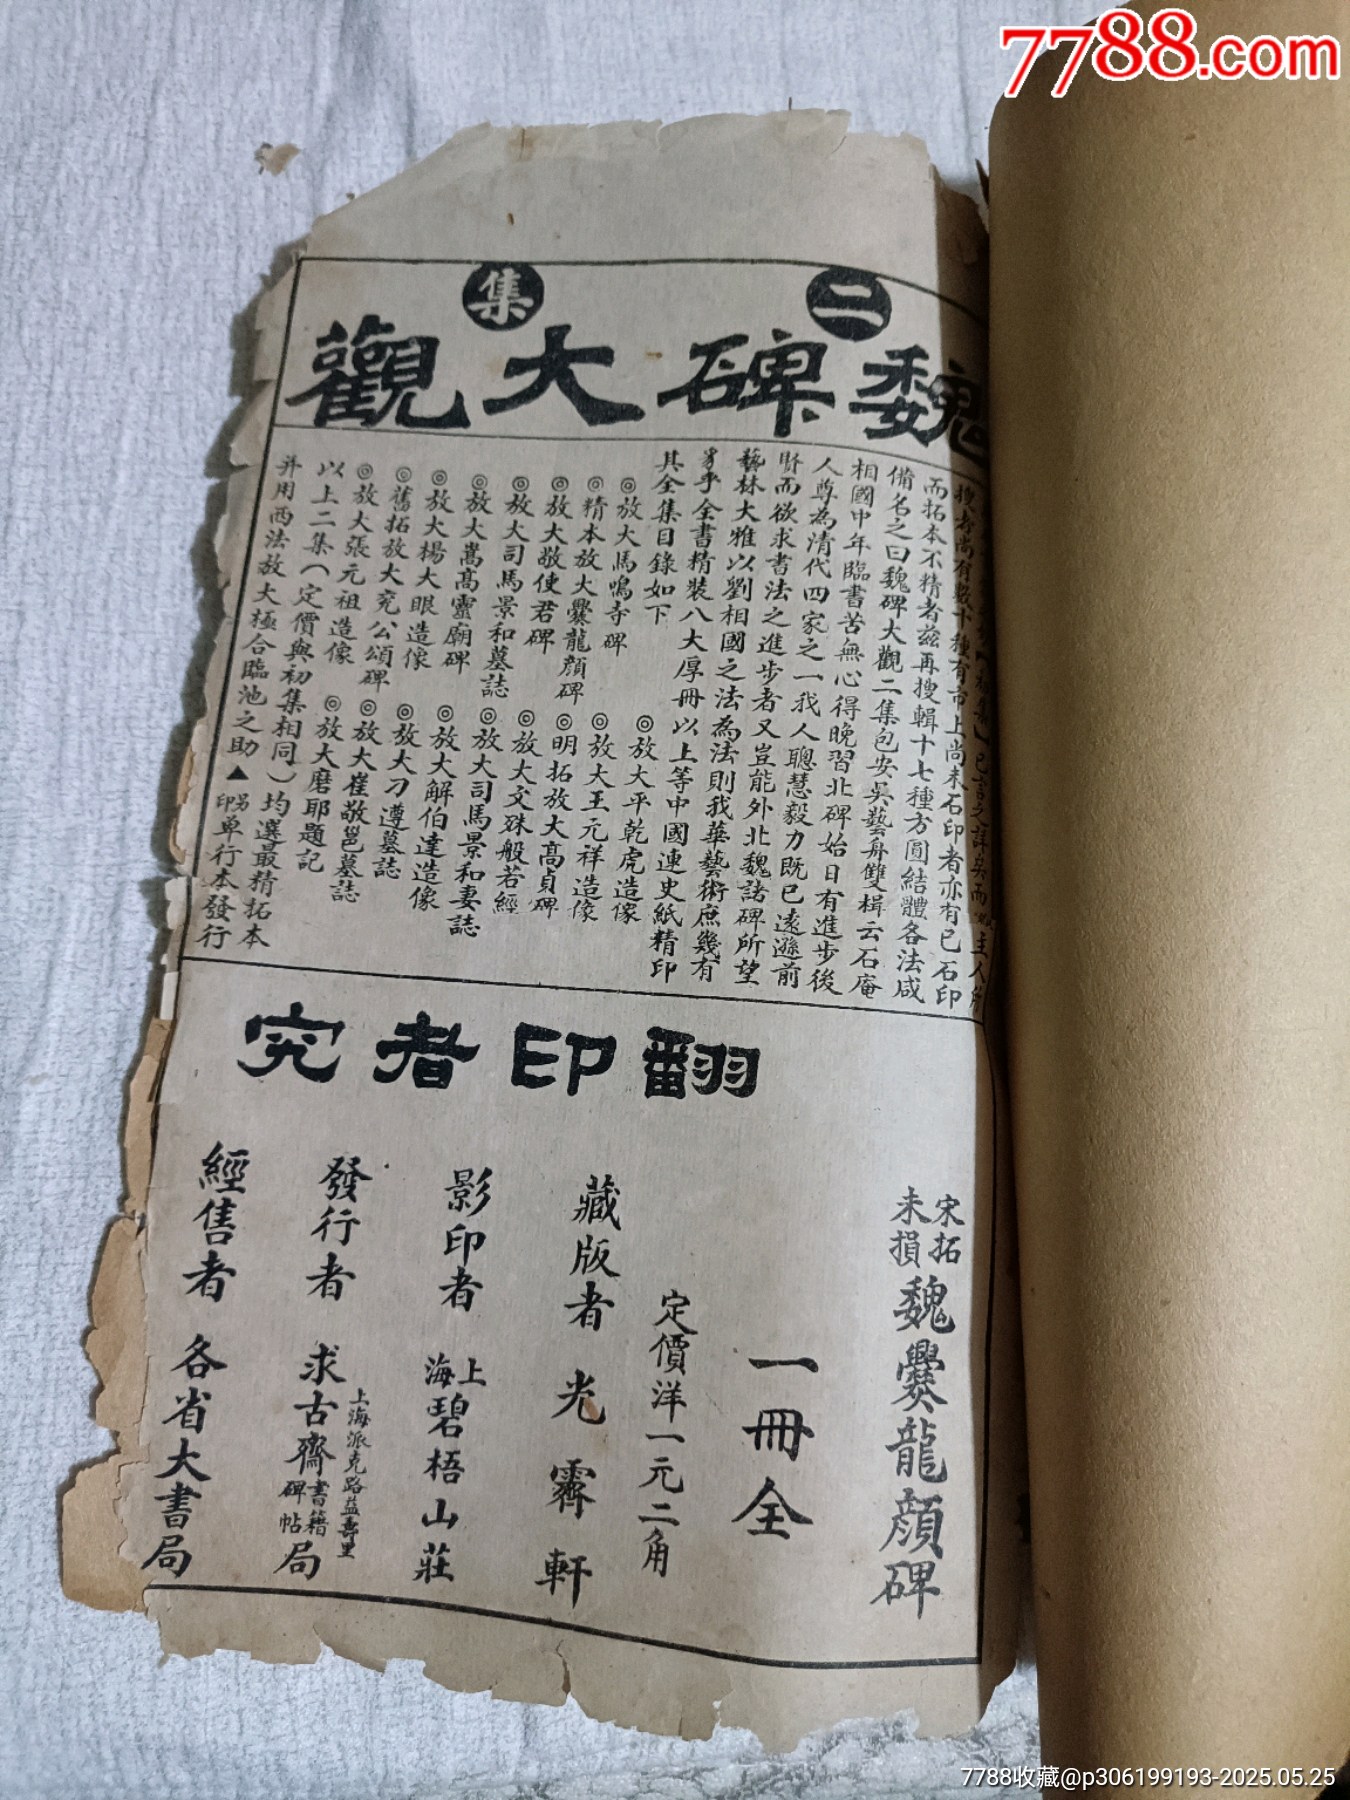 7788.com
二集
魏碑大觀
搜考尚有數十種有市上尚未石印者亦有已石印
而拓本不精者茲再搜輯十七種方圓結體各法咸
備名之曰魏碑大觀二集包安吳藝舟雙楫云石庵
相國中年臨書苦無心得晚習北碑始日有進步後
人尊為清代四家之一我人聰慧毅力既已遠遜前
賢而欲求書法之進步者又豈能外北魏諸碑所望
藝林大雅以劉相國之法為法則我華藝術庶幾有
乎全書精裝八大厚冊以上等中國連史紙精印
其全集目錄如下
◎放大馬鳴寺碑
◎放大平乾虎造像
◎精本放大爨龍顏碑
◎放大王元祥造像
◎放大敬使君碑
◎明拓放大高貞碑
◎放大司馬景和墓誌
◎放大文殊般若經
◎放大嵩高靈廟碑
◎放大司馬景和妻誌
◎放大楊大眼造像
◎放大解伯達造像
◎舊拓放大兖公頌碑
◎放大刁遵墓誌
◎放大張元祖造像
◎放大崔敬邕墓誌
◎放大磨耶題記
以上二集(定價與初集相同)均選最精拓本
并用西法放大極合臨池之助▲另印單行本發行
翻印者究
宋拓未損魏爨龍顏碑
一冊全
定價洋一元二角
藏版者 光霽軒
影印者 上海碧梧山莊
發行者 求古齋書籍碑帖局
上海派克路益壽里
經售者 各省大書局
7788收藏@p306199193-2025.05.25